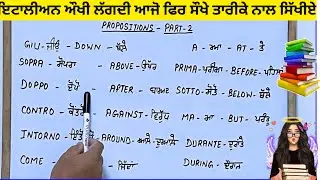 ਇਟਾਲੀਅਨ ਔਖੀ ਲੱਗਦੀ ਆਜੋ ਫਿਰ ਸੌਖੇ ਤਾਰੀਕੇ ਨਾਲ ਸਿੱਖੀਏ
PROPOSITIONS - PART-2
GIU - ਜੀਉ - DOWN - ਥੱਲੇ
A - ਆ - AT - ਤੇ
SOPRA - ਸੋਪਰਾ - ABOVE - ਉੱਪਰ
PRIMA - ਪਰੀਮਾ - BEFORE - ਪਹਿਲਾਂ
DOPPO - ਦੋਪੋ - AFTER -
SOTTO - ਸੋਤੋ - BELOW - ਥੱਲੇ
CONTRO - ਕੋਂਤਰੋ - AGAINST - ਵਿਰੁੱਧ
MA - ਮਾ - BUT - ਪਰੰਤੂ
INTORNO - - AROUND - ਆਸੇ ਦੁਆਲੇ
DURANTE - ਦੁਰਾਂਤੇ
COME -
DURING - ਦੌਰਾਨ